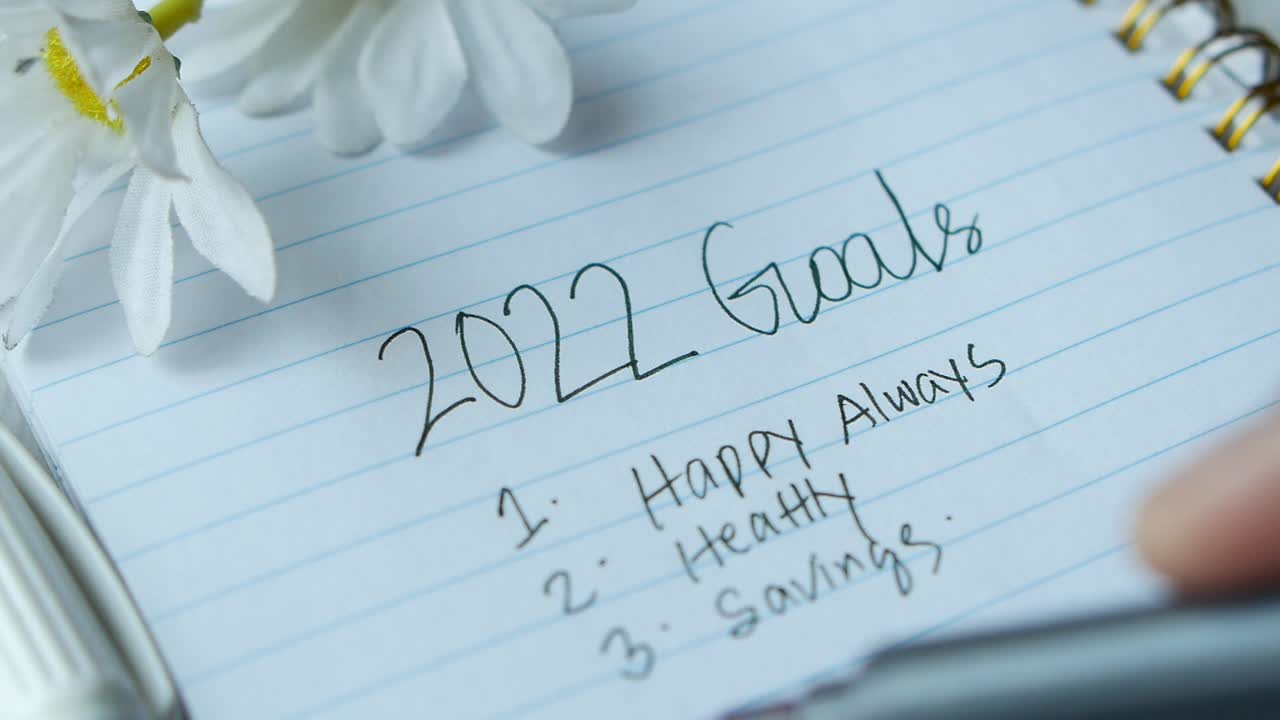 2022 Goals
1. Happy Always
2. Healthy
3. Savings.